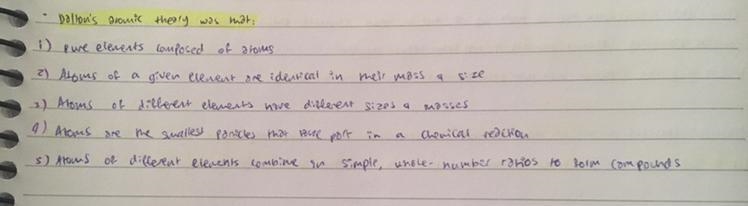 - Dalton's atomic theory was that:
1) pure elements composed of atoms
2) Atoms of a given element are identical in their mass & size
3) Atoms of different elements have different sizes & masses
4) Atoms are the smallest particles that take part in a chemical reaction
5) Atoms of different elements combine in simple, whole-number ratios to form compounds